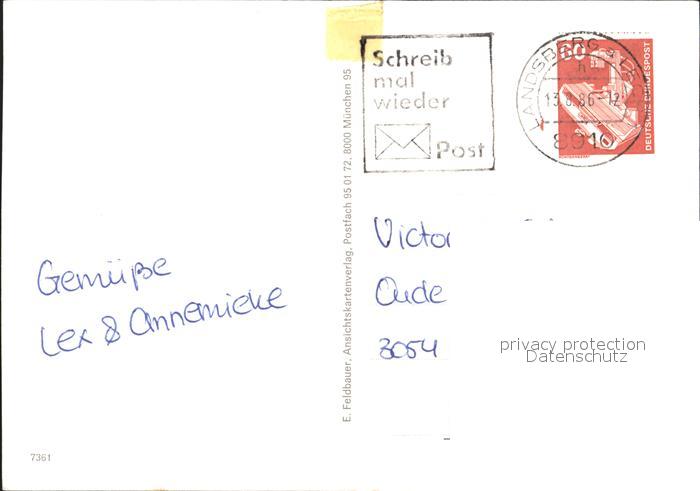 Schreib
mal
wieder
Post
LANDSBERG
13.8.86-12
8910
60
DEUTSCHE BUNDESPOST
E. Feldbauer, Ansichtskartenverlag, Postfach 95 01 72, 8000 München 95
Victor
Oude
3054
privacy protection
Datenschutz
Gemüße
Lex & Annemieke
7361